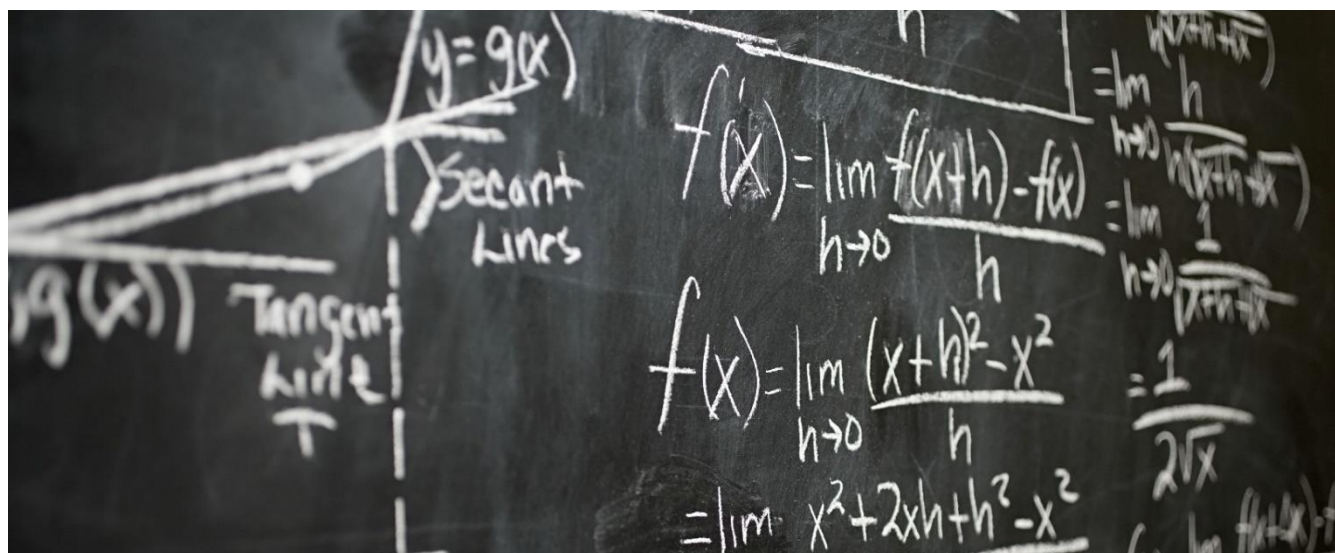 y = g(x)
Secant
Lines
g(x))
Tangent
Line
T
h
f'(x) = lim f(x+h) - f(x)
h→0 h
f(x) = lim (x+h)² - x²
h→0 h
= lim x² + 2xh + h² - x²
h(√x+h+√x)
= lim h
h→0 h(√x+h+√x)
= lim 1
h→0 √x+h+√x
= 1
2√x
lim